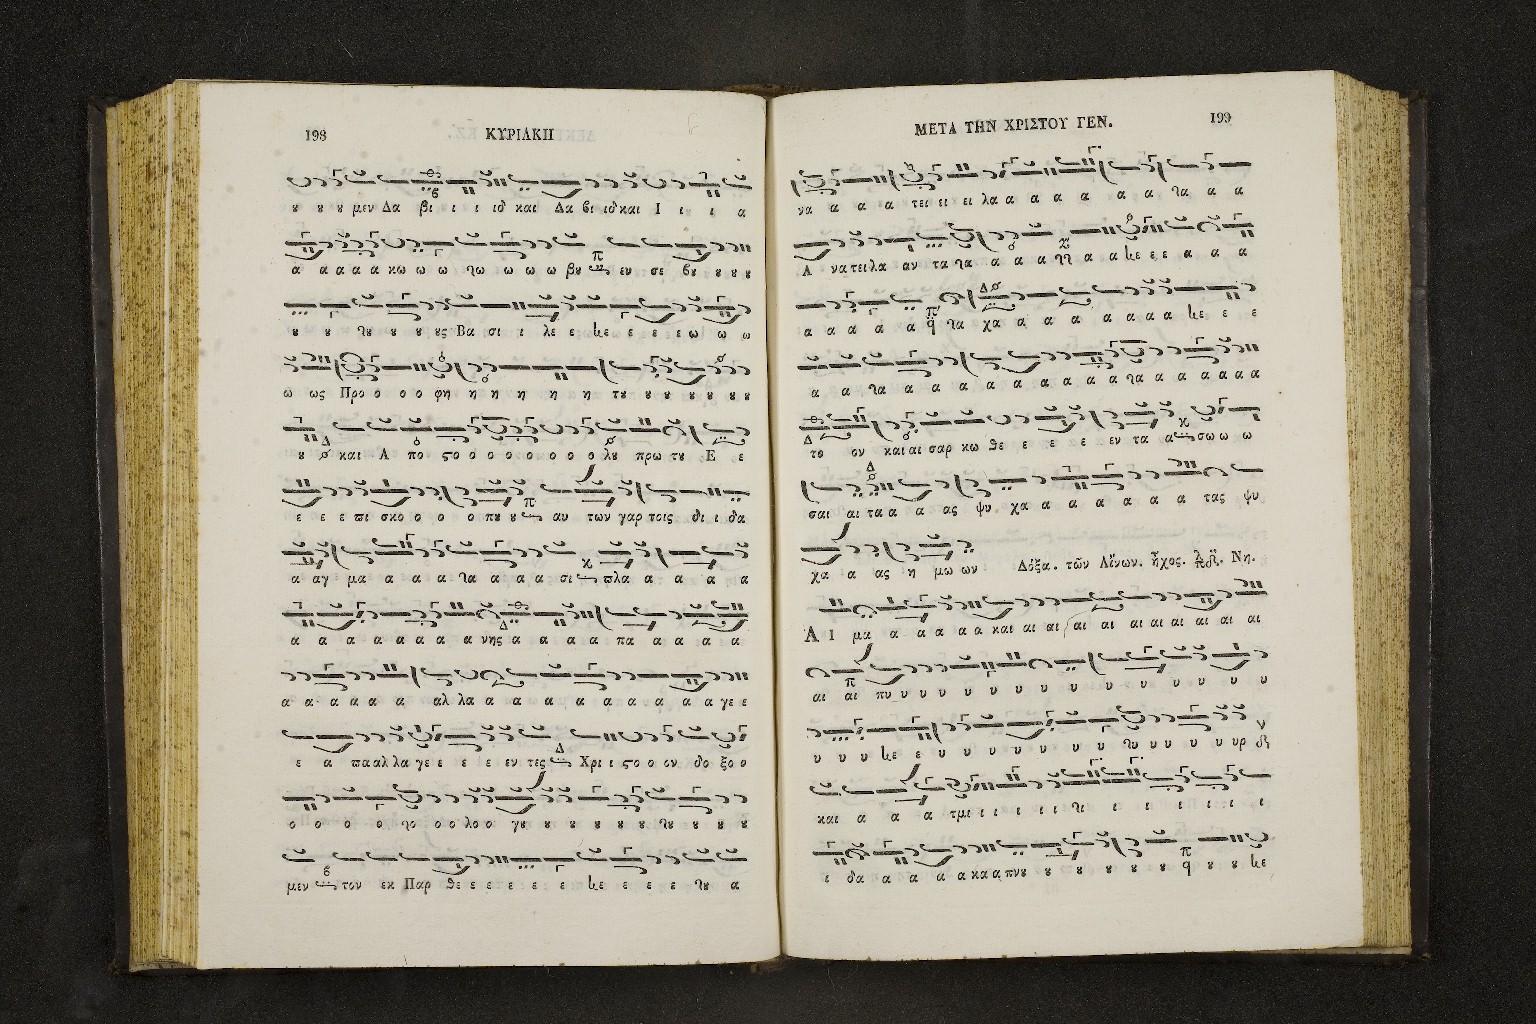 198
ΚΥΡΙΑΚΗ
ȣ ȣ ȣ μεν Δα βι ι ι ιδ και Δα βι ιδ και Ι ι ι α
α α α α α κω ω ω ω ω ω ω βȣ ευ σε βȣ ȣ ȣ ȣ
ȣ ȣ ȣ ȣ ȣ ȣς Βα σι ι λε ε ε ε ε ε ω ω ω
ω ως Προ ο ο ο φη η η η η η τȣ ȣ ȣ ȣ ȣ ȣ ȣ
ȣ και Α πο ϛο ο ο ο ο ο ο ο ο λȣ πρω τȣ Ε ε
ε ε ε πι σκο ο ο ο ο πȣ ȣ αυ των γαρ τοις δι ι δα
α αγ μα α α α α α α σι πλα α α α α
α α α α α α α α νης α α α α πα α α α α
α α α α α α αλ λα α α α α α α α α α γε ε
ε α πα αλ λα γε ε ε ε εν τες Χρι ι ϛο ο ον δο ξο ο
ο ο ο ο ο ο λο ο γȣ ȣ ȣ ȣ ȣ ȣ ȣ ȣ ȣ ȣ
μεν τον εκ Παρ θε ε ε ε ε ε ε ε ε α
ΜΕΤΑ ΤΗΝ ΧΡΙΣΤΟΥ ΓΕΝ.
199
να α α α τει ει ει λα α α α α α α α α
Α να τει λα αν τα α α α α α α ε ε α α α
α α α α α χα α α α α α α α ε ε
α α α α α α α α α α α α α α α α α
το ον και αι σαρ κω θε ε ε ε ε εν τα α σω ω ω
σαι αι τα α α ας ψυ χα α α α α α α τας ψυ
χα α ας η μω ων Δόξα. τῶν Αἴνων. ἦχος. Νη.
Α Ι μα α α α α α και αι αι αι αι αι αι αι αι αι αι
αι αι πυ υ υ υ υ υ υ υ υ υ υ υ υ υ υ
υ υ υ ε υ υ υ υ υ υ υ υ υ υ υ υρ
και α α α τμι ι ι ι ι ι ι ι ι ι ι ι
ι δα α α α α κα α πνȣ ȣ ȣ ȣ ȣ ȣ ȣ ȣ